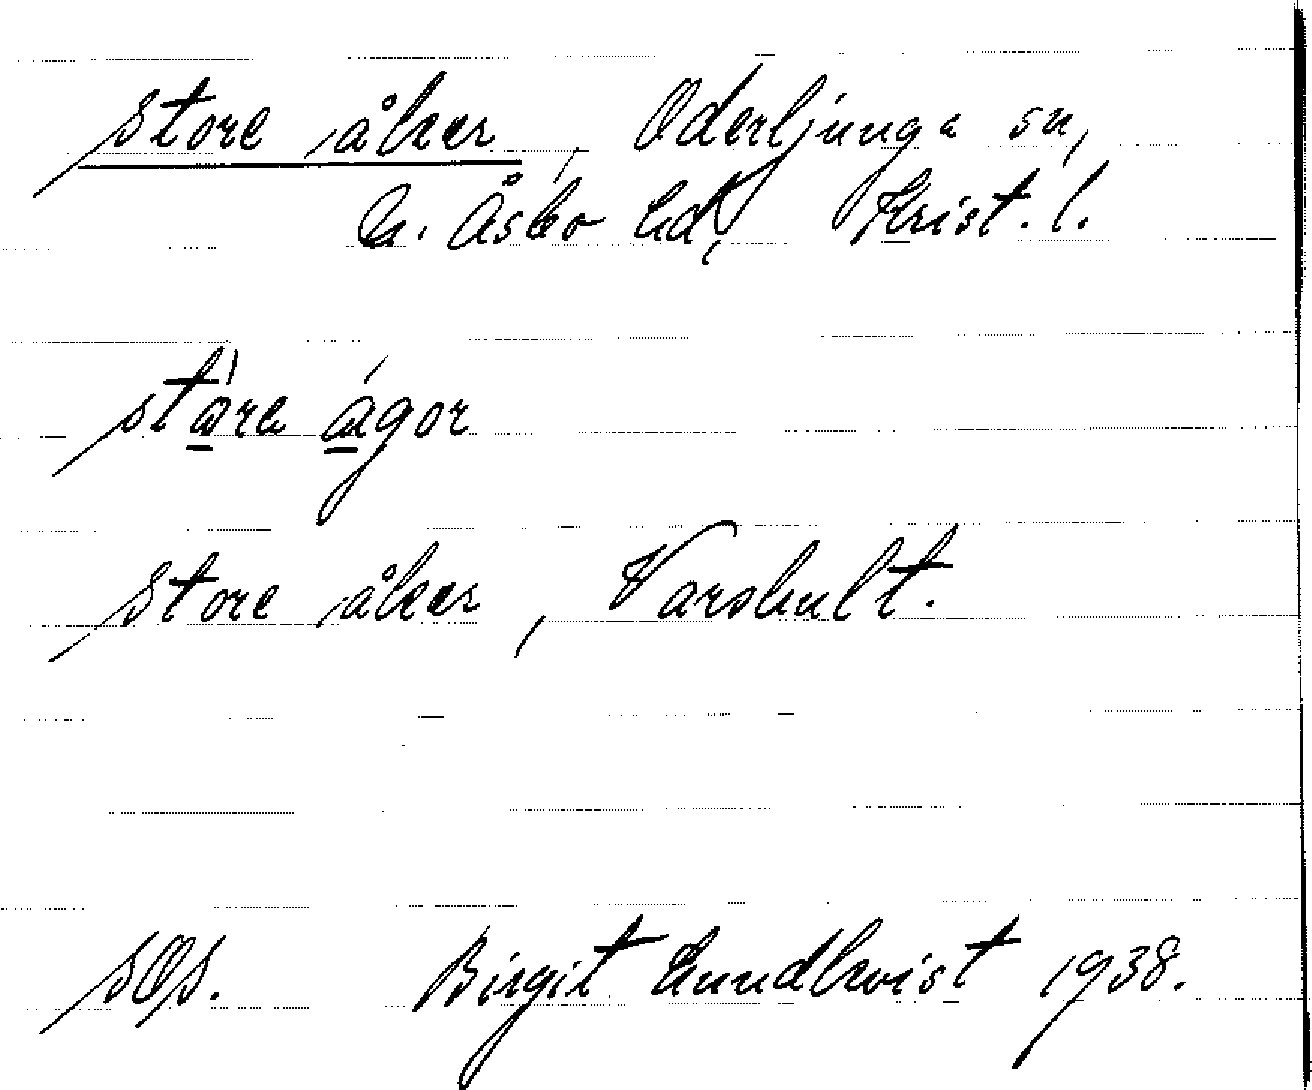 store åker, Oderljunga sn,
N. Åsbo hd, Krist. l.
stàra ágor
store åker, Varshult.
sOs. Birgit Lundkvist 1938.